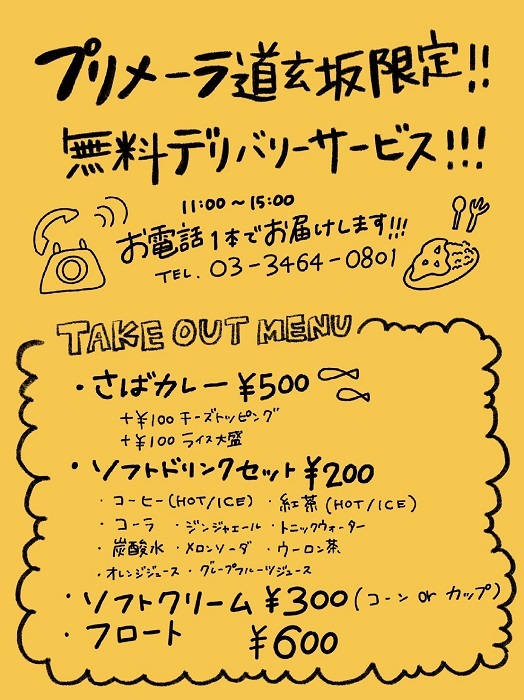 プリメーラ道玄坂限定!!
無料デリバリーサービス!!!
11:00～15:00
お電話1本でお届けします!!!
TEL. 03-3464-0801
TAKE OUT MENU
・さばカレー ¥500
+¥100 チーズトッピング
+¥100 ライス大盛
・ソフトドリンクセット ¥200
・コーヒー(HOT/ICE) ・紅茶(HOT/ICE)
・コーラ ・ジンジャエール ・トニックウォーター
・炭酸水 ・メロンソーダ ・ウーロン茶
・オレンジジュース ・グレープフルーツジュース
・ソフトクリーム ¥300(コーン or カップ)
・フロート ¥600